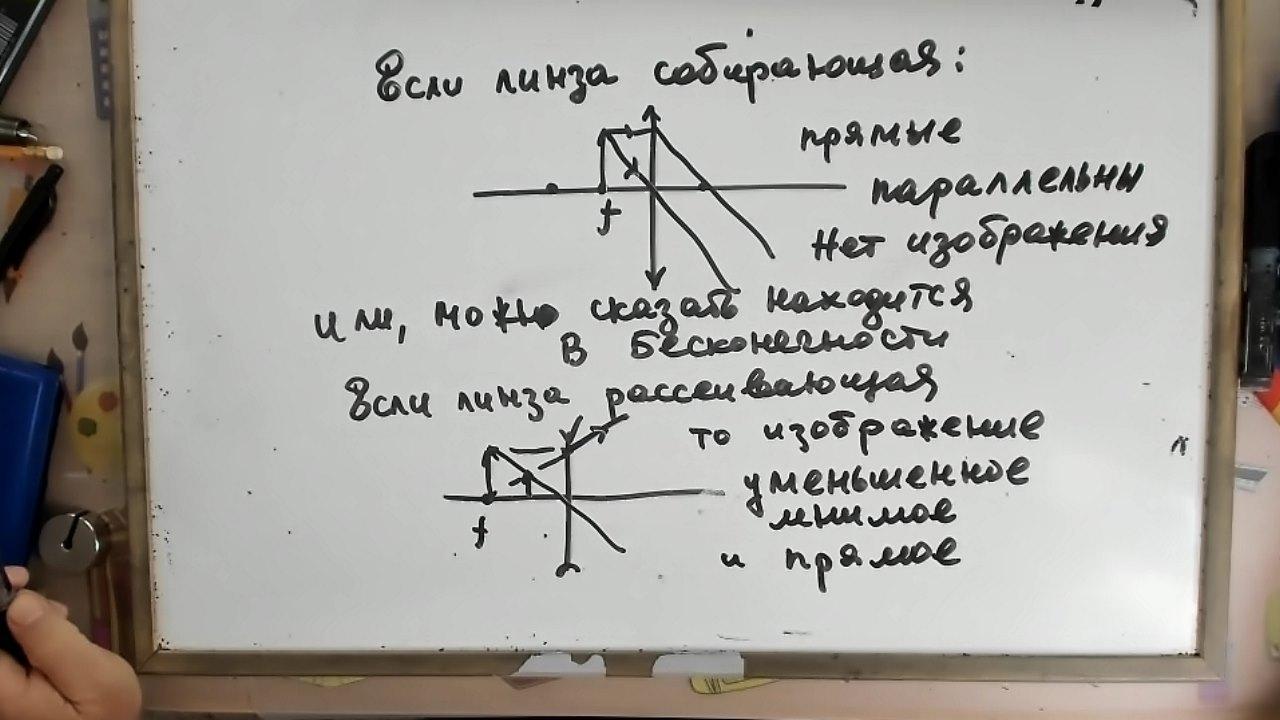 Если линза собирающая:
прямые
параллельны
f
Нет изображения
или, можно сказать находится
в бесконечности
Если линза рассеивающая
то изображение
уменьшенное
f
мнимое
и прямое